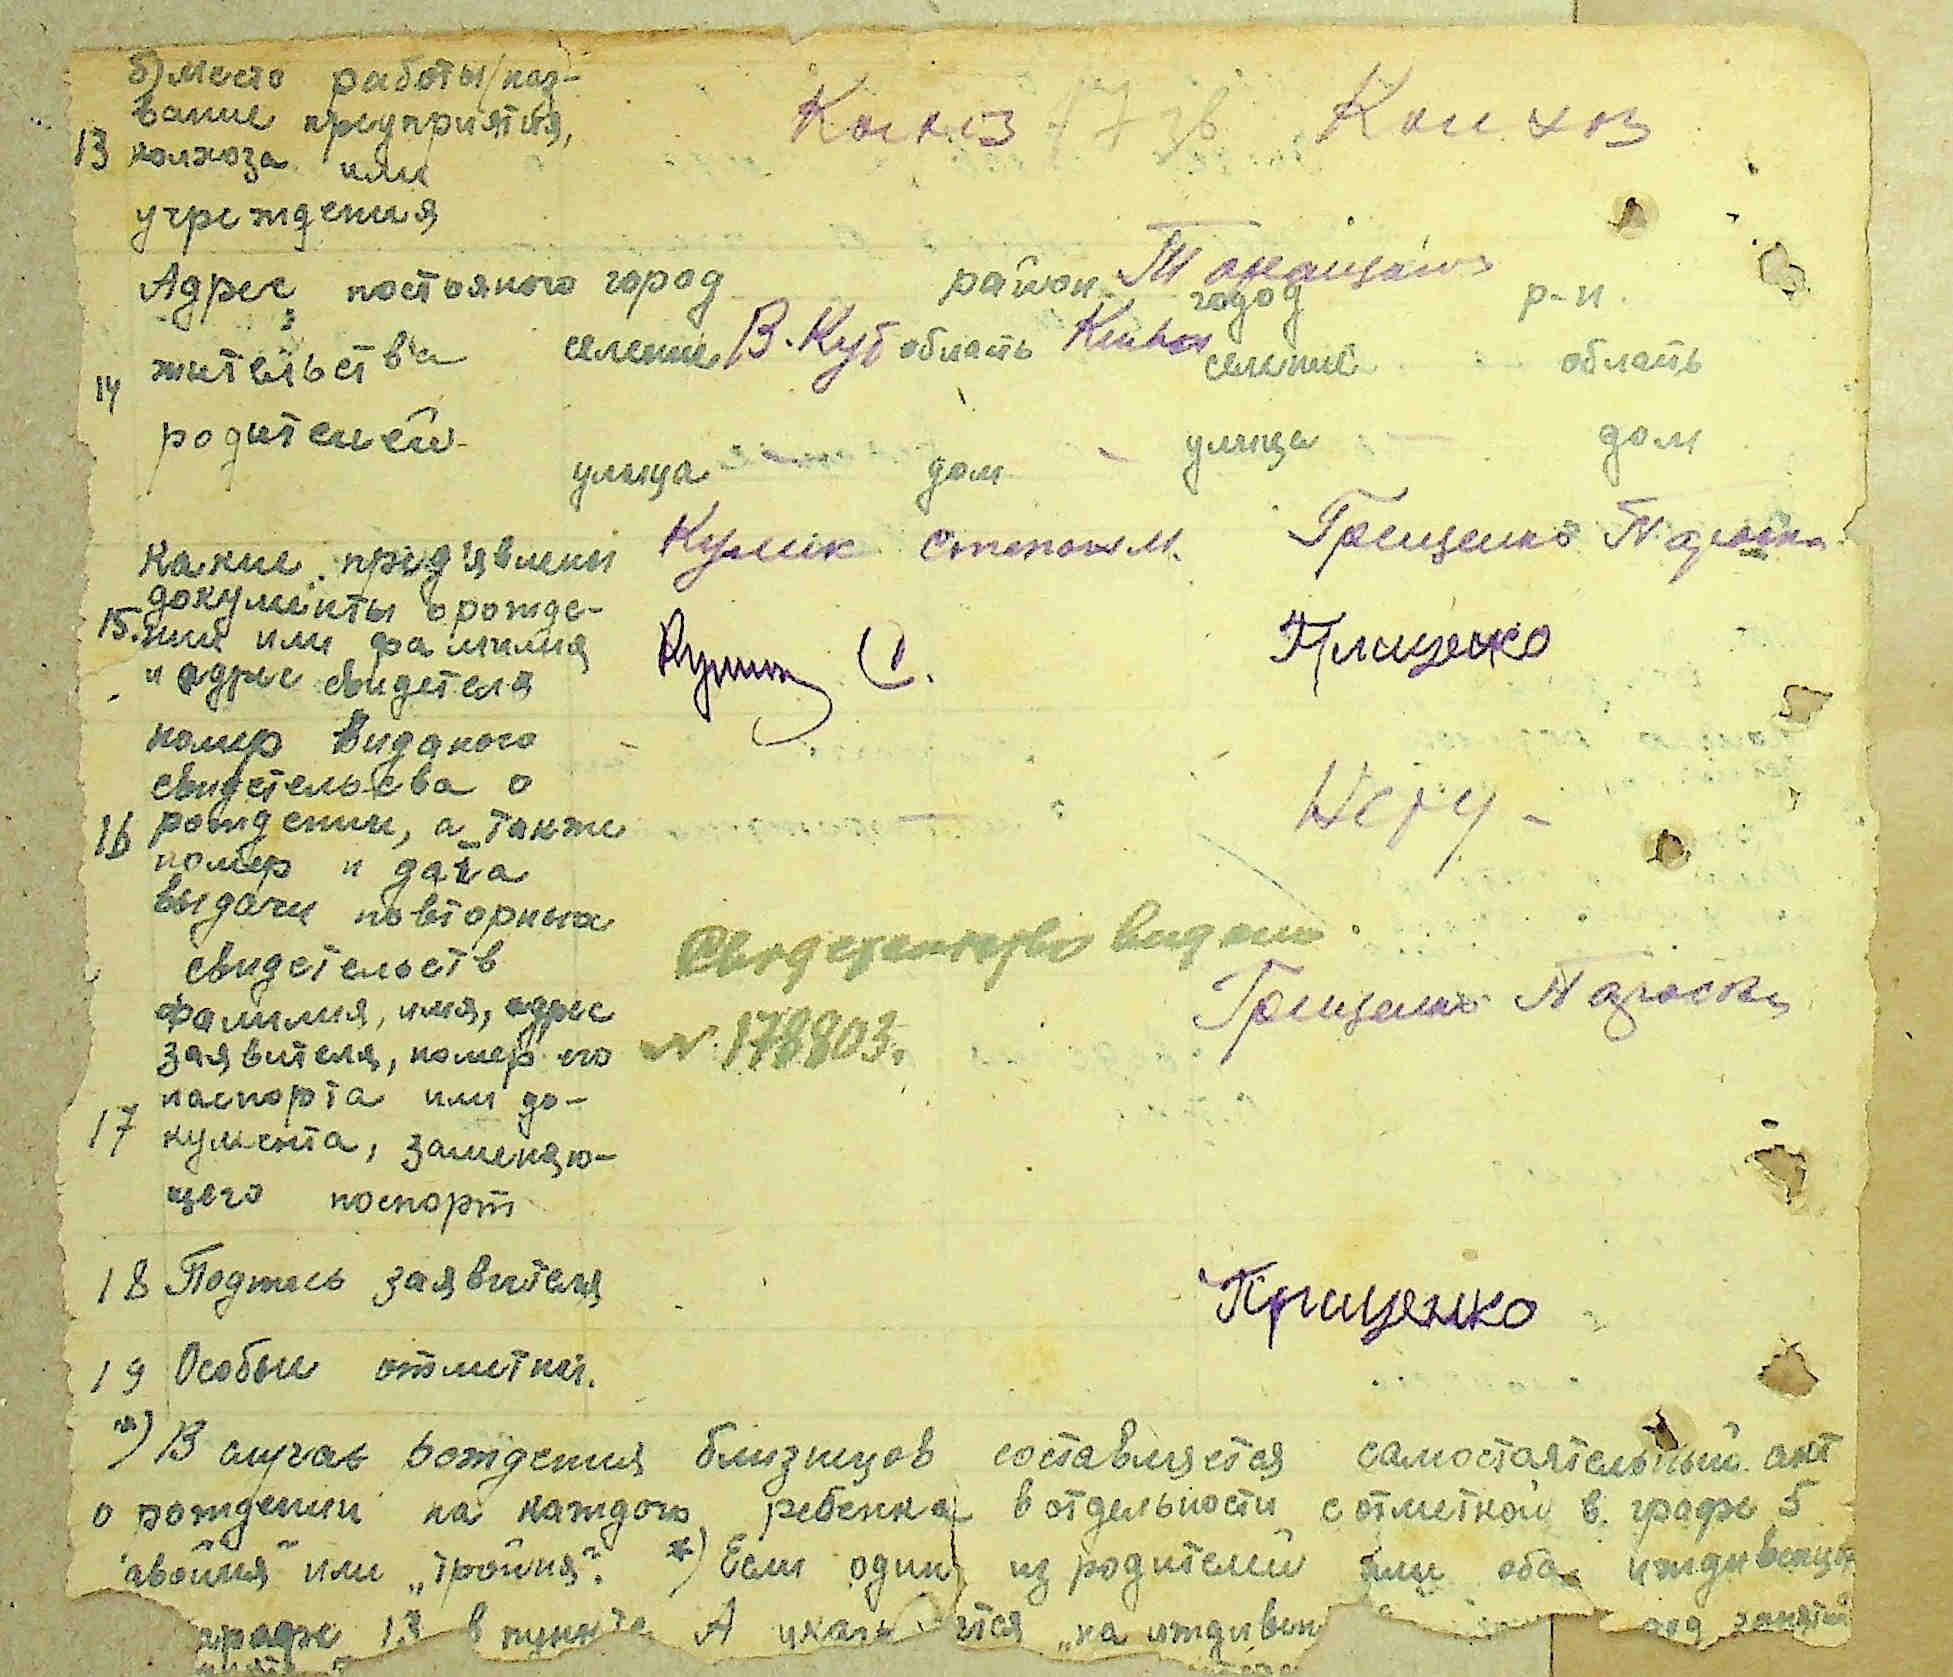 б) место работы (наз-
вание предприятия,
13 колхоза или
учреждения
Колхоз Колхоз
Адрес постояного город район городр-н.
жительства селение В. Куб область Киевск селение область
14
родителей улица дом улица дом
какие предъявлени
документы о рожде-
15. нии или фамилия
и адрес свидетеля
Кулик Степан М. Грищенко Параска
Кулик С. Грищенко
номер виданого
свидетельсва о
16 рождении, а также
номер и дата
выдачи повторных
свидетельств
Нету -
Свидетельство видано
N. 178803.
фамилия, имя, адрес
заявителя, номер его
паспорта или до-
17 кумента, заменяю-
щего поспорт
Грищенко Параска
18 Подпись заявителя Грищенко
19 Особые отметки.
*) В случае рождения близнецов составляется самостоятельный акт
о рождении на каждого ребенка в отдельности с отметкой в графе 5
"двойня" или "тройня". *) Если один из родителей или оба иждивенцы
графе 13 в пункте А указывается "на иждивен